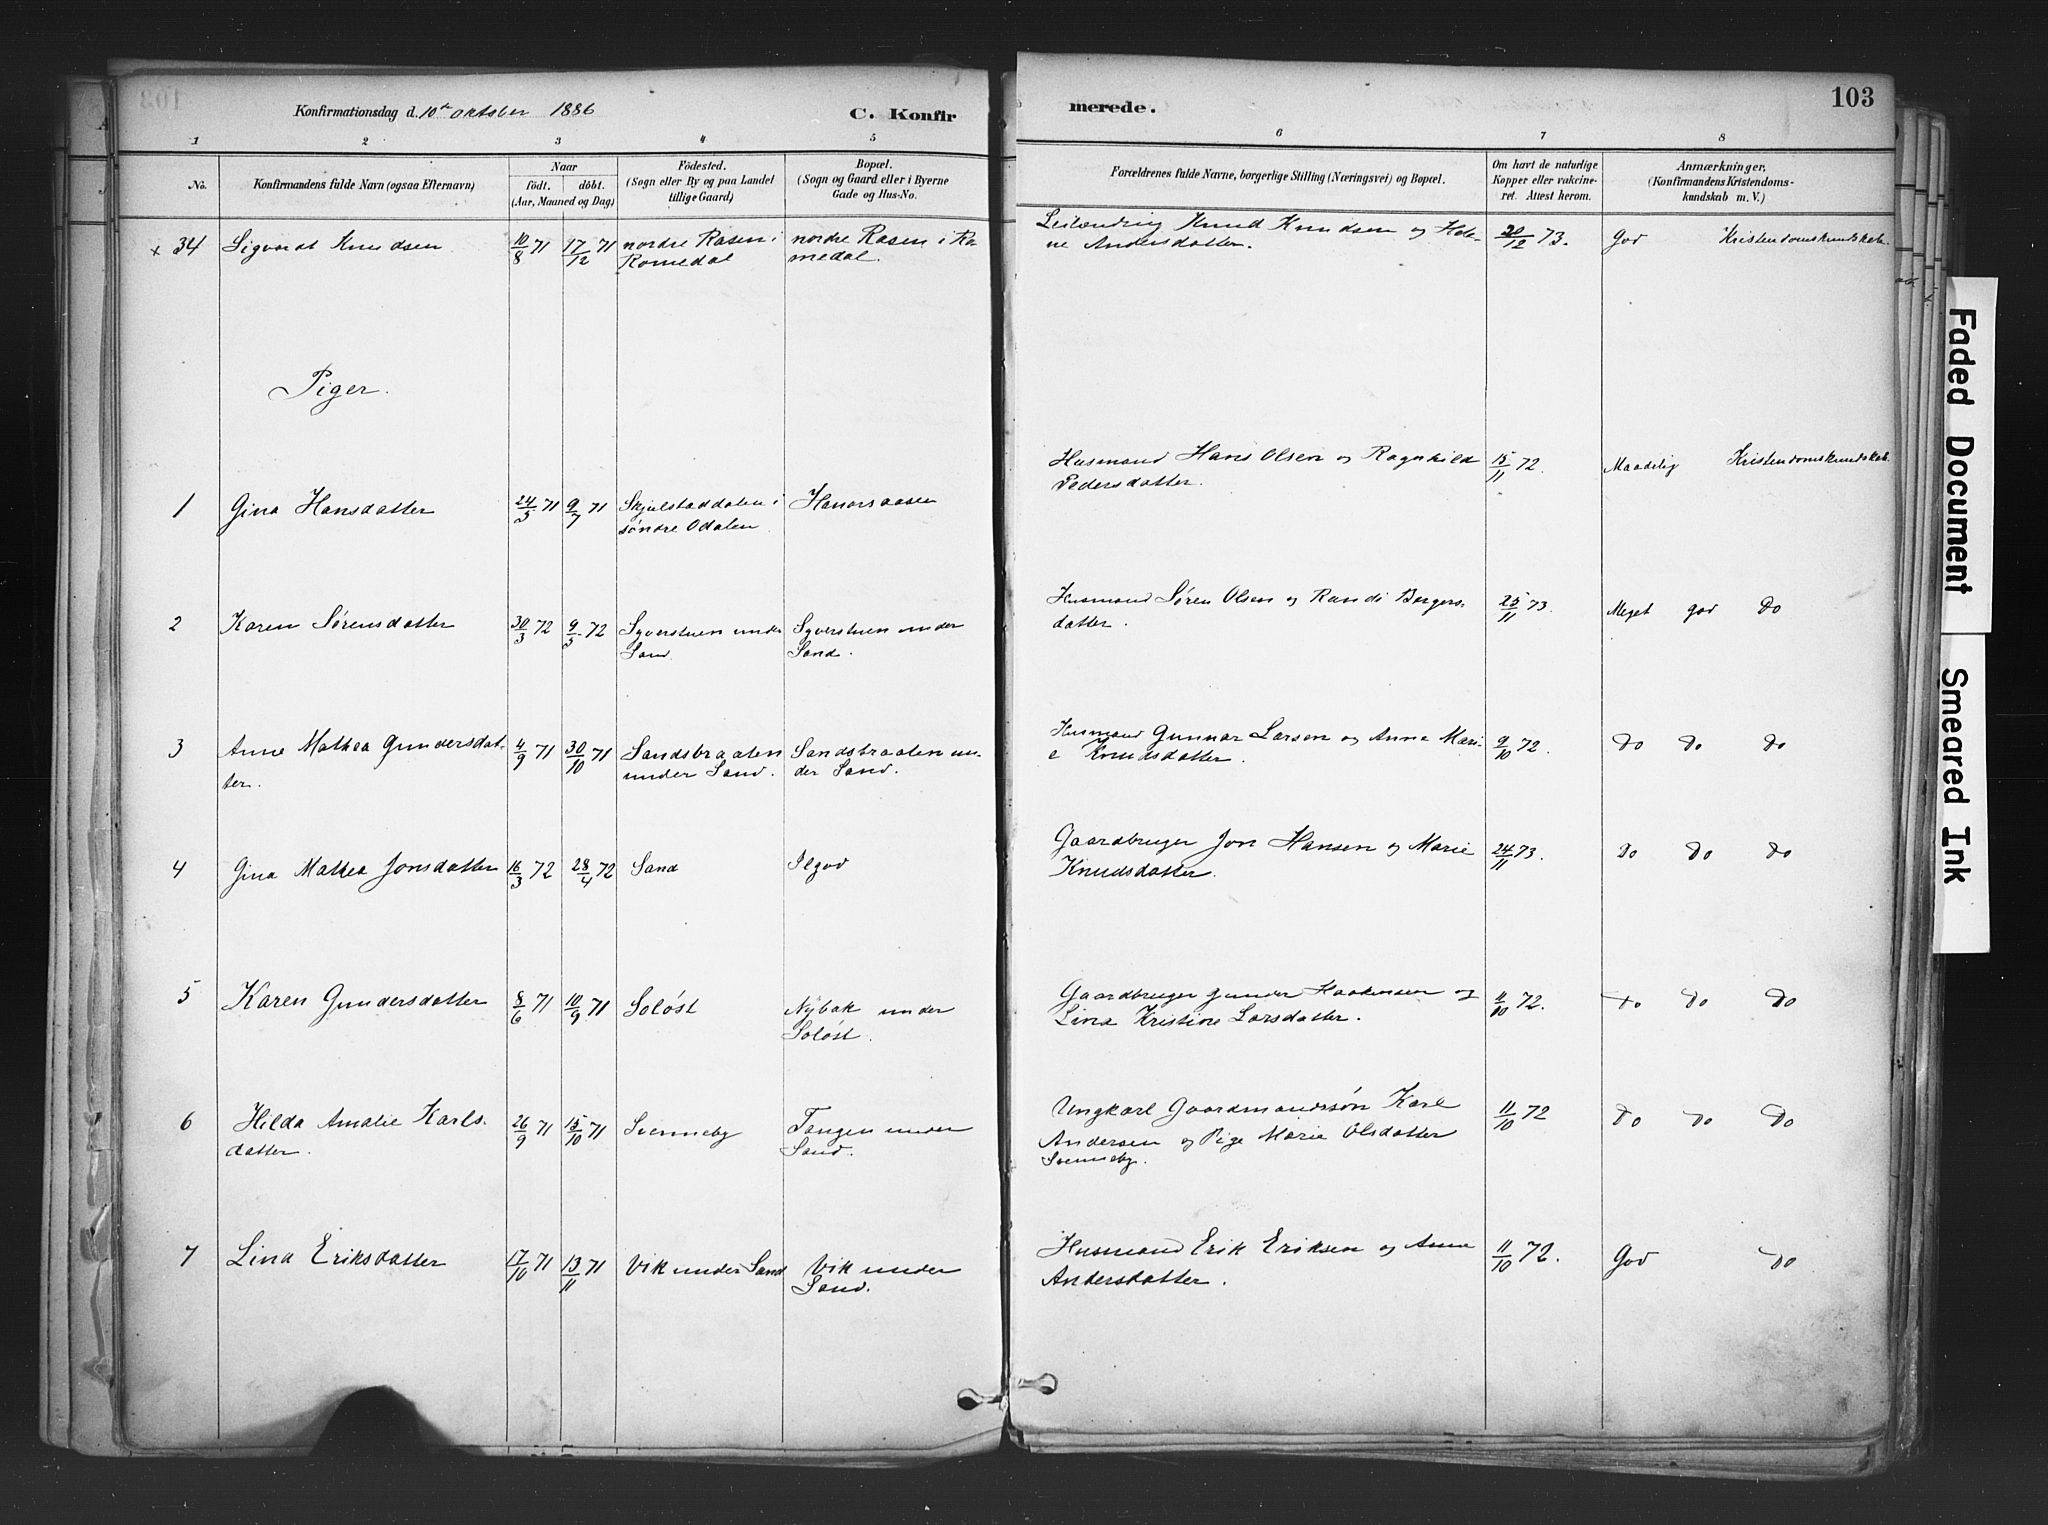 103
Konfirmationsdag d. 10de oktober 1886
C. Konfirmerede.
1 2 3 4 5 6 7 8
No.
Konfirmandens fulde Navn (ogsaa Efternavn)
Naar
födt. döbt.
(Aar, Maaned og Dag)
Födested.
(Sogn eller By og paa Landet
tillige Gaard)
Bopæl.
(Sogn og Gaard eller i Byerne
Gade og Hus-No.
Forældrenes fulde Navne, borgerlige Stilling (Næringsvei) og Bopæl.
Om havt de naturlige
Kopper eller vakcine-
ret. Attest herom.
Anmærkninger,
(Konfirmandens Kristendoms-
kundskab m. V.)
x 34 Sigvardt Knudsen 10/8 71 17/12 71 nordre Rosen i
Romedal
nordre Rosen i Ro-
medal.
Leilænding Knud Knudsen og Hele-
ne Andersdatter.
20/12 73. God Kristendomskundskab.
Piger.
1 Gina Hansdatter 24/5 71 9/7 71 Skjulstaddalen i
søndre Odalen
Hanorsaasen
Husmand Hans Olsen og Ragnhild
Pedersdatter.
15/11 72. Maadelig Kristendomskundskab.
2 Karen Sørensdatter 30/3 72 9/5 72 Syverstuen under
Sand
Syverstuen under
Sand.
Husmand Søren Olsen og Randi Borgers-
datter.
25/11 73. Meget god Do
3 Anne Mathea Gundersdat-
ter.
4/9 71 30/10 71 Sandsbraaten
under Sand.
Sandsbraaten un-
der Sand.
Husmand Gunnar Larsen og Anne Mari-
e Knudsdatter.
9/10 72. Do Do Do
4 Gina Mathea Jonsdatter 16/3 72 28/4 72 Sand
Gaardbruger Jon Hansen og Marie
Knudsdatter.
24/11 73. Do Do Do
5 Karen Gundersdatter 8/6 71 10/9 71 Soløst
Nybak under
Soløst.
Gaardbruger Gunder Haakensen og
Lina Kristine Larsdatter.
11/10 72. Do Do Do
6 Hilda Amalie Karls-
datter.
26/9 71 15/10 71 Svenneby
Tangen under
Sand.
Ungkarl Gaardmandssøn Karl
Andersen og Pige Marie Olsdatter
Svenneby.
11/10 72 Do Do Do
7 Lina Eriksdatter 17/10 71 13/11 71 Vik under Sand
Vik under
Sand.
Husmand Erik Eriksen og Anne
Andersdatter.
11/10 72. God Do
Faded Document
Smeared Ink